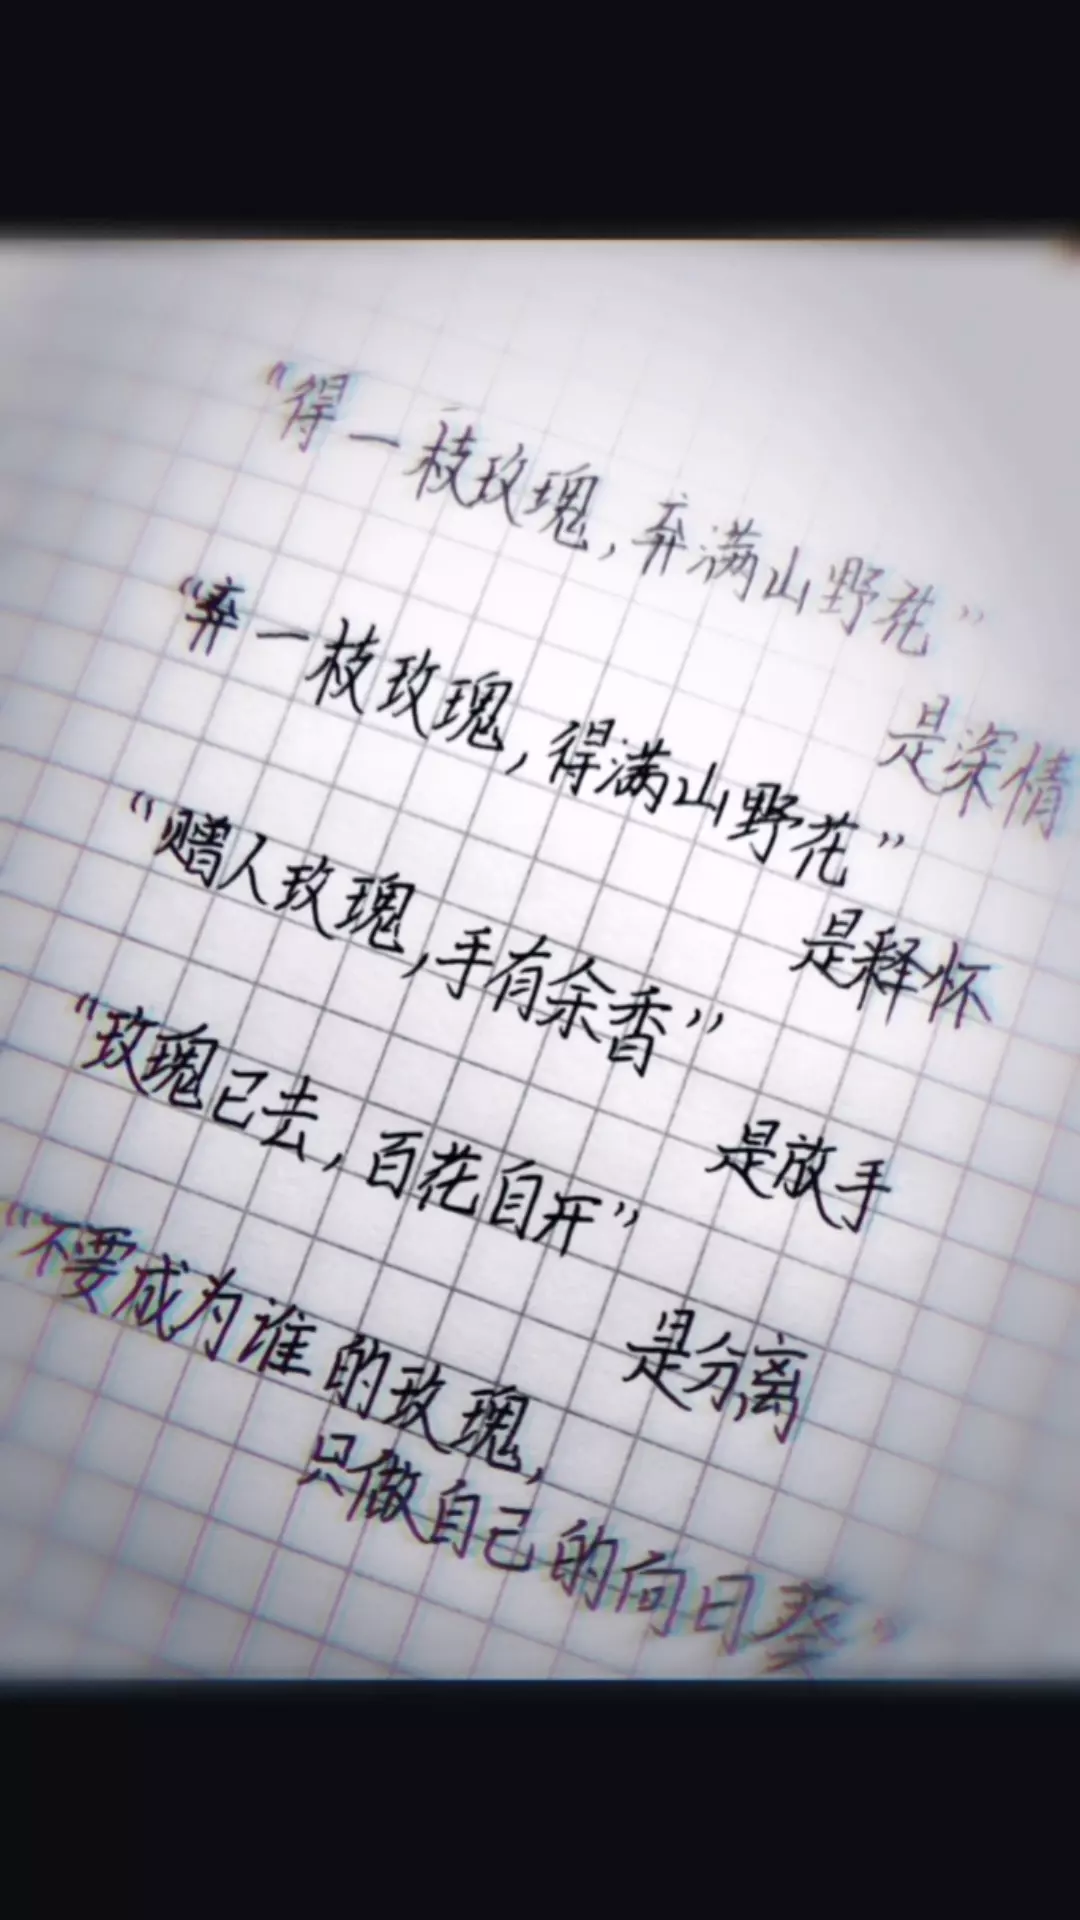 “得一枝玫瑰,弃满山野花”
是深情
“弃一枝玫瑰,得满山野花”
是释怀
“赠人玫瑰,手有余香”
是放手
“玫瑰已去,百花自开”
是分离
“不要成为谁的玫瑰,
只做自己的向日葵”